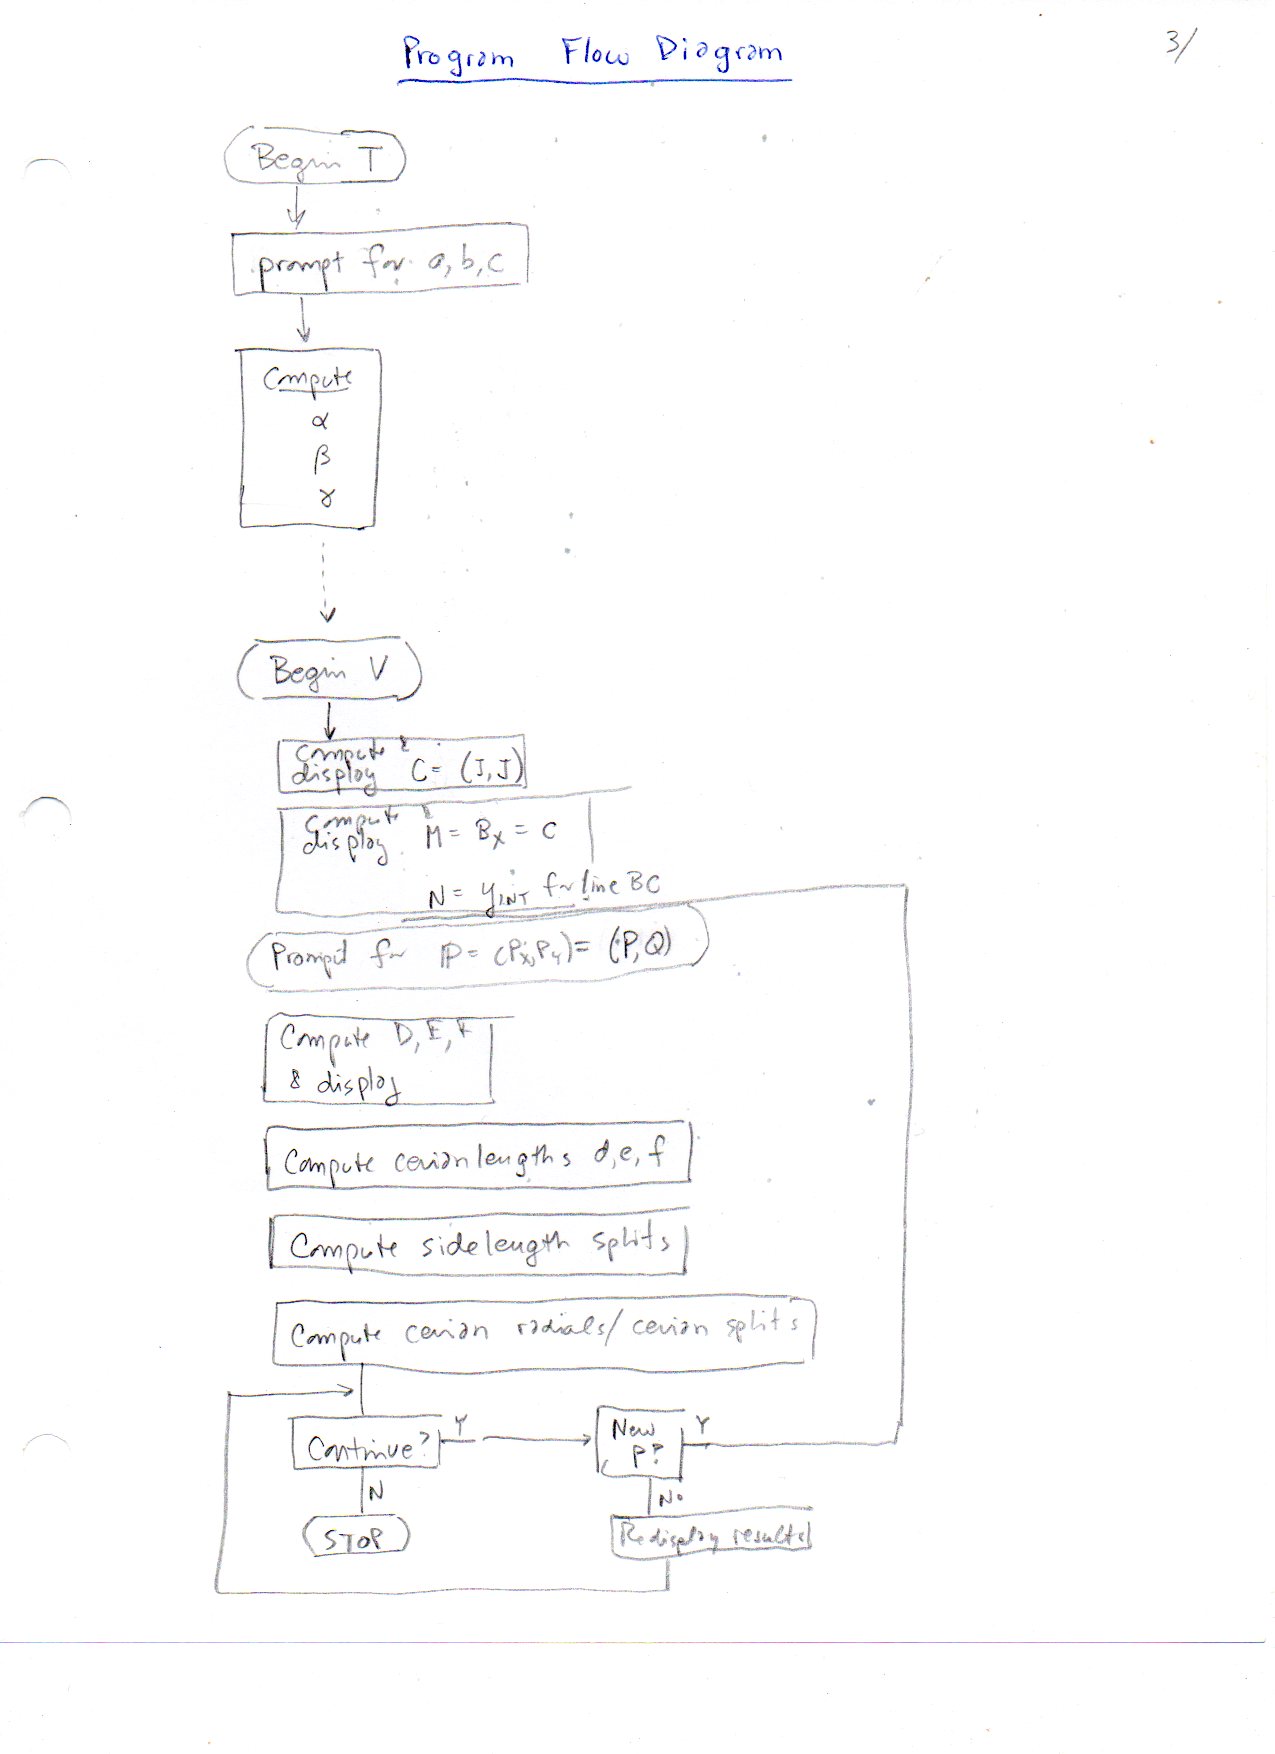 Program Flow Diagram
3/
Begin T
prompt for a, b, c
Compute
α
β
γ
Begin V
Compute &
display C = (I, J)
Compute &
display M = Bx = C
N = yINT for line BC
Prompt for P = (Px, Py) = (P, Q)
Compute D, E, F
& display
Compute cevian lengths d, e, f
Compute sidelength splits
Compute cevian radials/cevian splits
Continue? Y
New
P? Y
N
No
STOP
Redisplay results